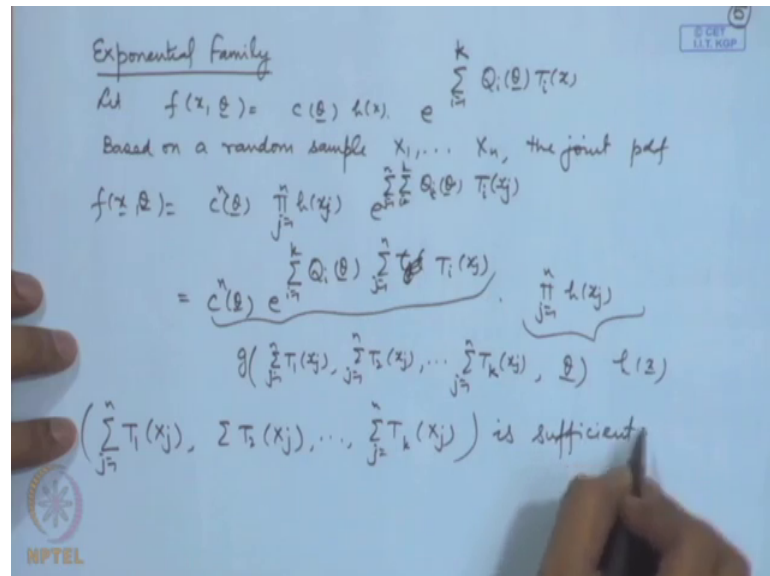 © CET
I.I.T. KGP
Exponential Family
Let f(x, θ) = c(θ) h(x). e^{∑_{i=1}^{k} Q_i(θ) T_i(x)}
Based on a random sample X_1, ... X_n, the joint pdf
f(x, θ) = c^n(θ) ∏_{j=1}^{n} h(x_j) e^{∑_{j=1}^{n} ∑_{i=1}^{k} Q_i(θ) T_i(x_j)}
= c^n(θ) e^{∑_{i=1}^{k} Q_i(θ) ∑_{j=1}^{n} T_i(x_j)} . ∏_{j=1}^{n} h(x_j)
g( ∑_{j=1}^{n} T_1(x_j), ∑_{j=1}^{n} T_2(x_j), ... ∑_{j=1}^{n} T_k(x_j), θ) h(x)
( ∑_{j=1}^{n} T_1(X_j), ∑ T_2(X_j), ..., ∑_{j=}^{n} T_k(X_j) ) is sufficient
NPTEL